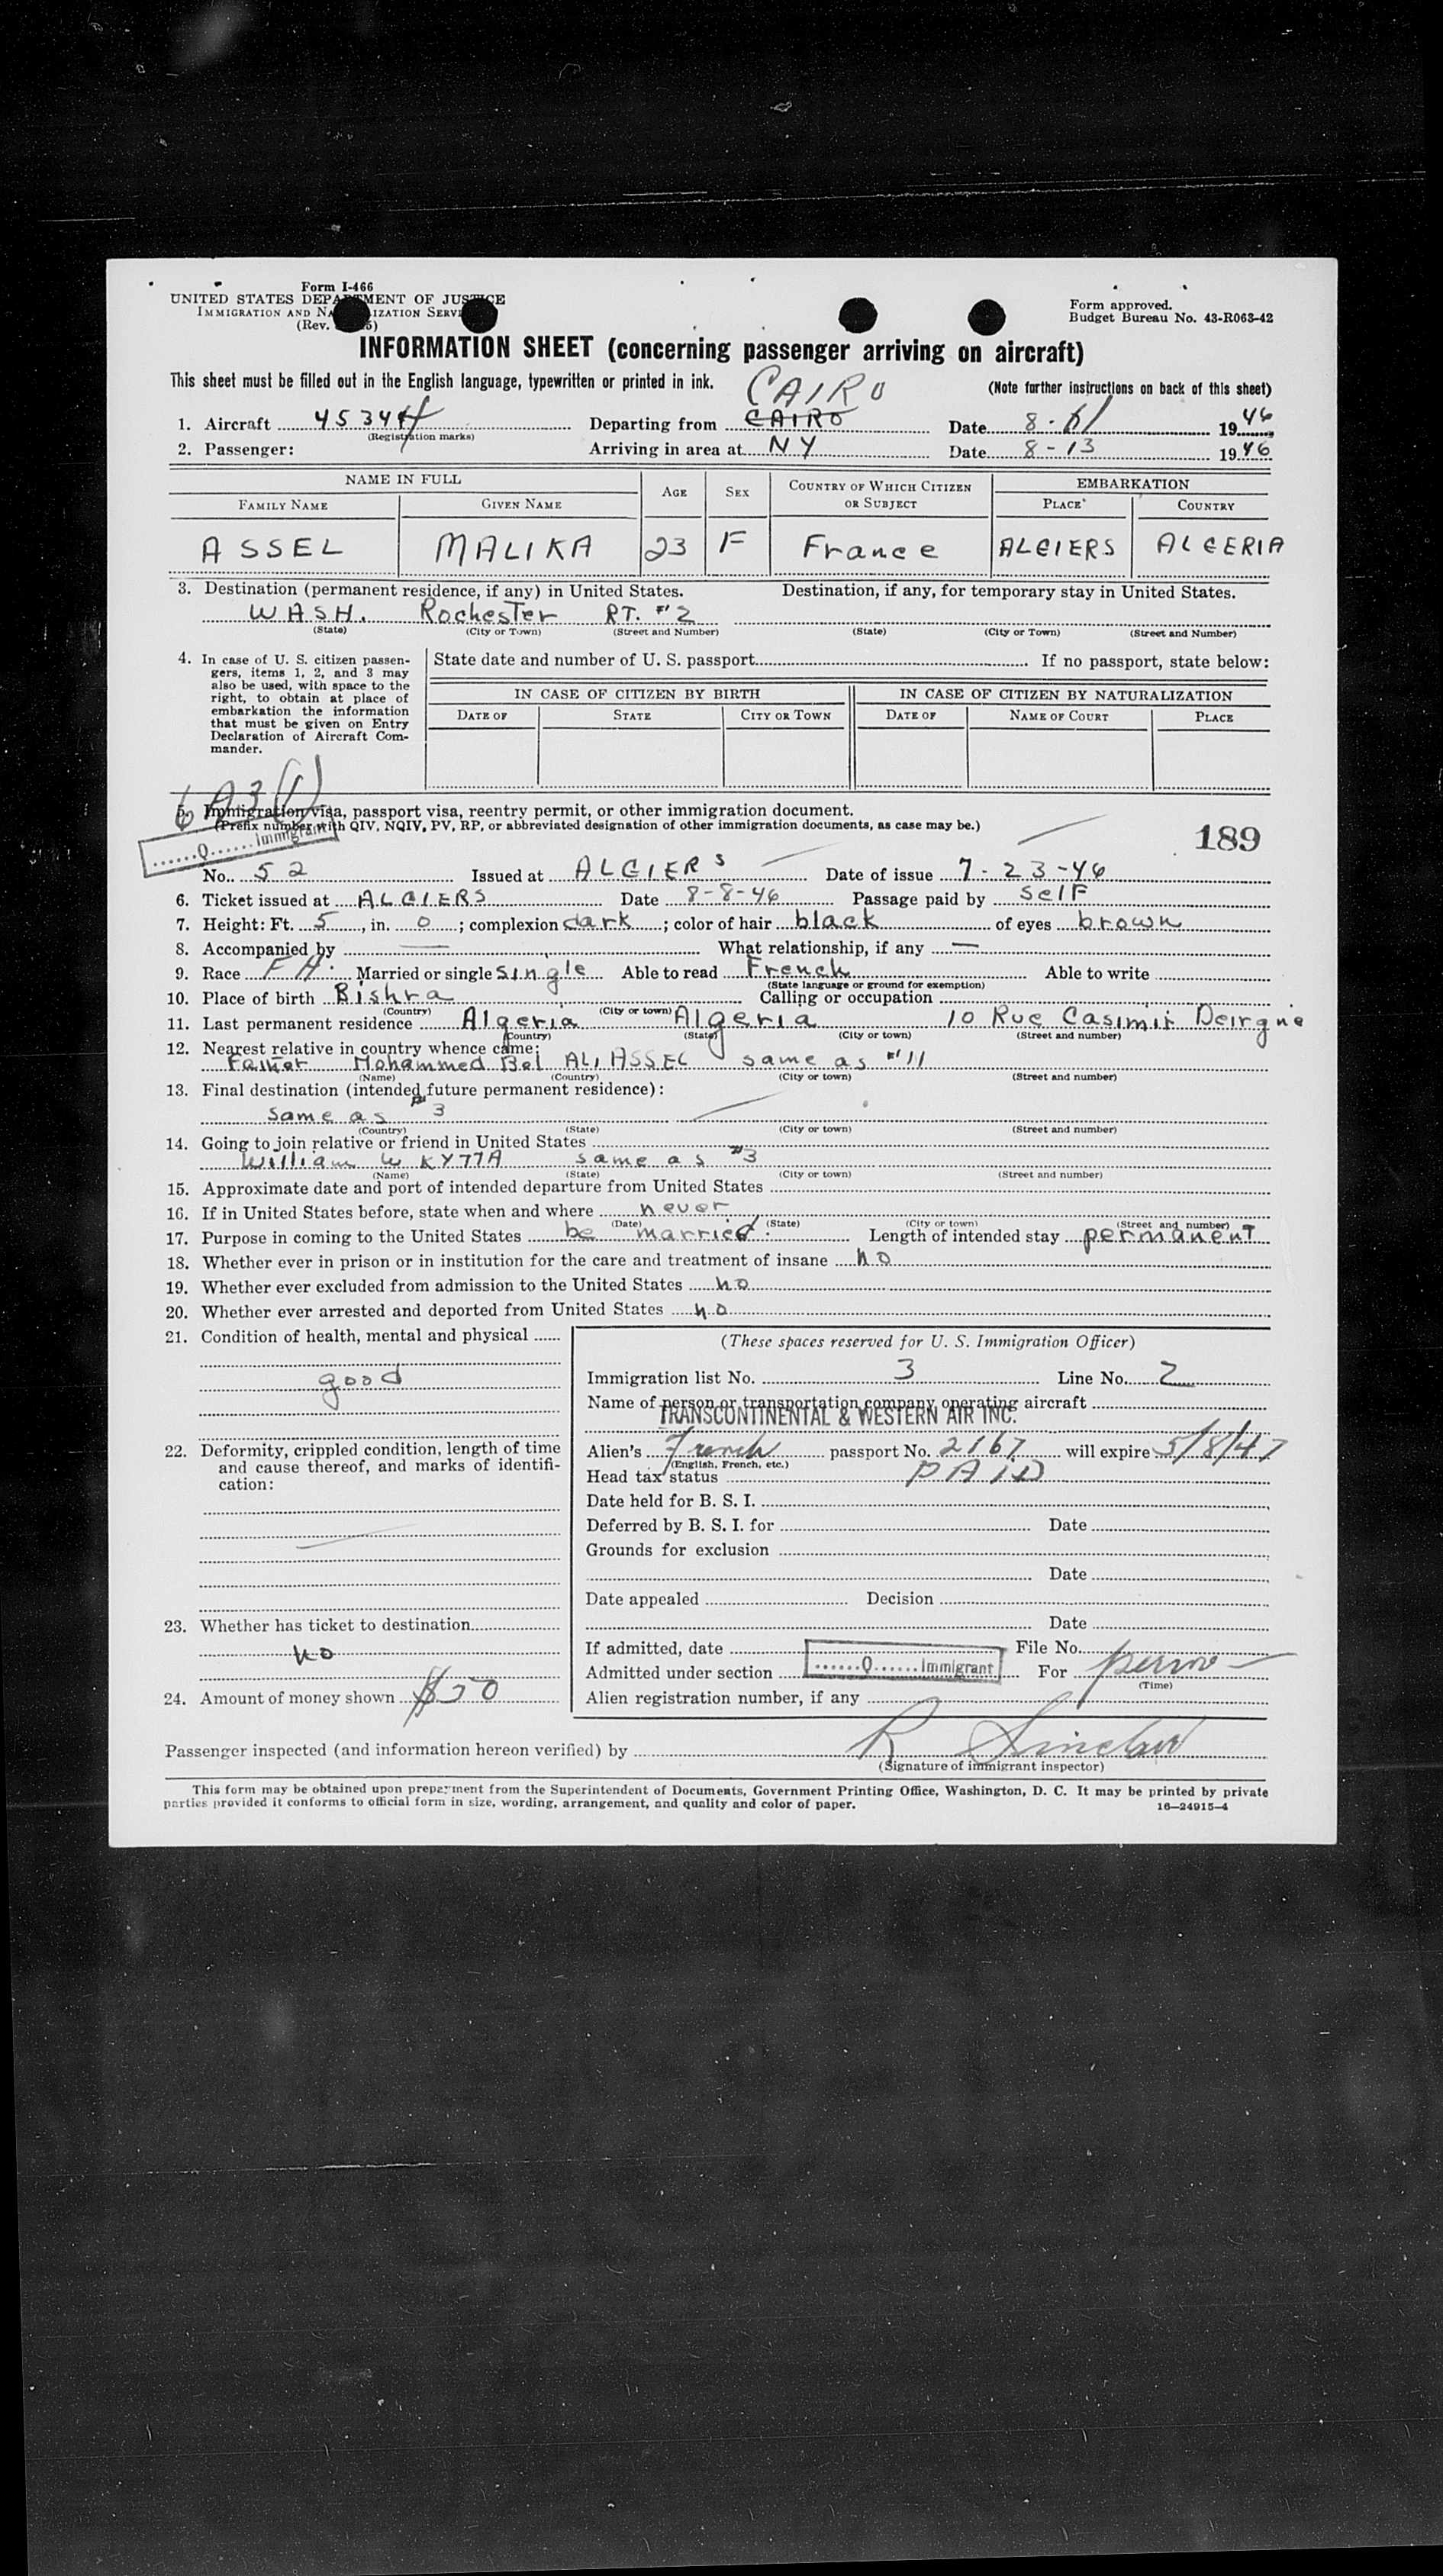 Form I-466
UNITED STATES DEPARTMENT OF JUSTICE
IMMIGRATION AND NATURALIZATION SERVICE
(Rev.
Form approved.
Budget Bureau No. 43-R063-42
INFORMATION SHEET (concerning passenger arriving on aircraft)
This sheet must be filled out in the English language, typewritten or printed in ink.
CAIRO
(Note further instructions on back of this sheet)
1. Aircraft 45344 Departing from CAIRO Date 8-11 1946
(Registration marks)
2. Passenger: Arriving in area at NY Date 8-13 1946
NAME IN FULL AGE SEX COUNTRY OF WHICH CITIZEN OR SUBJECT EMBARKATION
FAMILY NAME GIVEN NAME PLACE COUNTRY
ASSEL MALIKA 23 F France ALGIERS ALGERIA
3. Destination (permanent residence, if any) in United States. Destination, if any, for temporary stay in United States.
WASH. Rochester RT. #2
(State) (City or Town) (Street and Number) (State) (City or Town) (Street and Number)
4. In case of U. S. citizen passen-
gers, items 1, 2, and 3 may
also be used, with space to the
right, to obtain at place of
embarkation the information
that must be given on Entry
Declaration of Aircraft Com-
mander.
State date and number of U. S. passport If no passport, state below:
IN CASE OF CITIZEN BY BIRTH IN CASE OF CITIZEN BY NATURALIZATION
DATE OF STATE CITY OR TOWN DATE OF NAME OF COURT PLACE
6A3(1)
5. Immigration visa, passport visa, reentry permit, or other immigration document.
(Prefix number with QIV, NQIV, PV, RP, or abbreviated designation of other immigration documents, as case may be.)
......Q...... Immigrant
189
No. 52 Issued at ALGIERS Date of issue 7-23-46
6. Ticket issued at ALGIERS Date 8-8-46 Passage paid by Self
7. Height: Ft. 5, in. 0; complexion dark; color of hair black of eyes brown
8. Accompanied by — What relationship, if any —
9. Race Married or single single Able to read French Able to write
(State language or ground for exemption)
10. Place of birth Bishra Calling or occupation
(Country) (City or town)
11. Last permanent residence Algeria Algeria 10 Rue Casimir
(Country) (State) (City or town) (Street and number)
12. Nearest relative in country whence came:
Father Mohammed Bel ALI ASSEL same as #11
(Name) (Country) (City or town) (Street and number)
13. Final destination (intended future permanent residence):
same as #3
(Country) (State) (City or town) (Street and number)
14. Going to join relative or friend in United States
William W KYTTA same as #3
(Name) (State) (City or town) (Street and number)
15. Approximate date and port of intended departure from United States
16. If in United States before, state when and where never
(Date) (State) (City or town) (Street and number)
17. Purpose in coming to the United States be married. Length of intended stay permanent
18. Whether ever in prison or in institution for the care and treatment of insane no
19. Whether ever excluded from admission to the United States no
20. Whether ever arrested and deported from United States no
21. Condition of health, mental and physical
good
22. Deformity, crippled condition, length of time
and cause thereof, and marks of identifi-
cation:
23. Whether has ticket to destination
no
24. Amount of money shown $50
(These spaces reserved for U. S. Immigration Officer)
Immigration list No. 3 Line No. 2
Name of person or transportation company operating aircraft
TRANSCONTINENTAL & WESTERN AIR INC.
Alien's French passport No. 2167 will expire 5/8/47
(English, French, etc.)
Head tax status PAID
Date held for B. S. I.
Deferred by B. S. I. for Date
Grounds for exclusion
Date
Date appealed Decision
Date
If admitted, date File No.
Admitted under section ......Q...... Immigrant For perm
(Time)
Alien registration number, if any
Passenger inspected (and information hereon verified) by R Sinclair
(Signature of immigrant inspector)
This form may be obtained upon prepayment from the Superintendent of Documents, Government Printing Office, Washington, D. C. It may be printed by private
parties provided it conforms to official form in size, wording, arrangement, and quality and color of paper. 16—24915-4